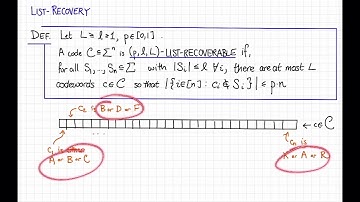 LIST-RECOVERY
DEF. Let L ≥ l ≥ 1, p∈[0,1].
A code C ⊆ Σⁿ is (p, l, L)-LIST-RECOVERABLE if,
for all S₁,..,Sₙ ⊆ Σ with |Sᵢ| ≤ l ∀i, there are at most L
codewords c∈C so that |{i∈[n] : cᵢ ∉ Sᵢ}| ≤ p·n
c₂ is B or D or F
c∈C
...
c₁ is
A or B or C
cₙ is
X or A or R